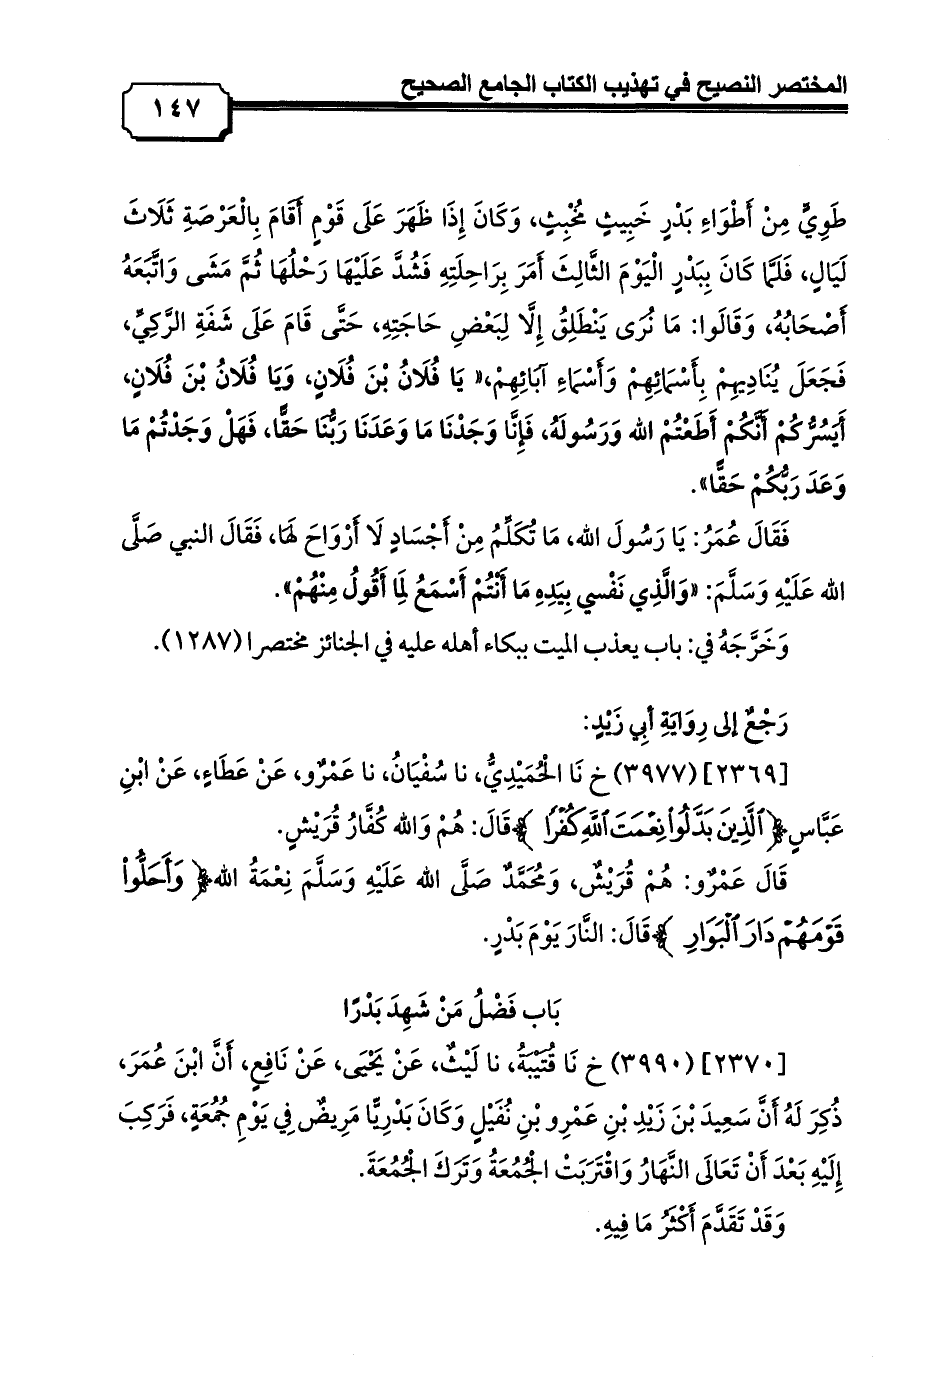 المختصر النصيح في تهذيب الكتاب الجامع الصحيح
١٤٧
طَوِيٍّ مِنْ أَطْوَاءِ بَدْرٍ خَبِيثٍ مُخْبِثٍ، وَكَانَ إِذَا ظَهَرَ عَلَى قَوْمٍ أَقَامَ بِالْعَرْصَةِ ثَلَاثَ
لَيَالٍ، فَلَمَّا كَانَ بِبَدْرٍ الْيَوْمَ الثَّالِثَ أَمَرَ بِرَاحِلَتِهِ فَشُدَّ عَلَيْهَا رَحْلُهَا ثُمَّ مَشَى وَاتَّبَعَهُ
أَصْحَابُهُ، وَقَالُوا: مَا نُرَى يَنْطَلِقُ إِلَّا لِبَعْضِ حَاجَتِهِ، حَتَّى قَامَ عَلَى شَفَةِ الرَّكِيِّ،
فَجَعَلَ يُنَادِيهِمْ بِأَسْمَائِهِمْ وَأَسْمَاءِ آبَائِهِمْ،« يَا فُلَانُ بْنَ فُلَانٍ، وَيَا فُلَانُ بْنَ فُلَانٍ،
أَيَسُرُّكُمْ أَنَّكُمْ أَطَعْتُمْ الله وَرَسُولَهُ، فَإِنَّا وَجَدْنَا مَا وَعَدَنَا رَبُّنَا حَقًّا، فَهَلْ وَجَدْتُمْ مَا
وَعَدَ رَبُّكُمْ حَقًّا».
فَقَالَ عُمَرُ: يَا رَسُولَ الله، مَا تُكَلِّمُ مِنْ أَجْسَادٍ لَا أَرْوَاحَ لَهَا، فَقَالَ النبي صَلَّى
الله عَلَيْهِ وَسَلَّمَ: «وَالَّذِي نَفْسي بِيَدِهِ مَا أَنْتُمْ أَسْمَعُ لِمَا أَقُولُ مِنْهُمْ».
وَخَرَّجَهُ في: باب يعذب الميت ببكاء أهله عليه في الجنائز مختصرا (١٢٨٧).
رَجْعٌ إلى رِوَايَةِ أبِي زَيْدٍ:
[٢٣٦٩] (٣٩٧٧) خ نَا الْحُمَيْدِيُّ، نا سُفْيَانُ، نا عَمْرٌو، عَنْ عَطَاءٍ، عَنْ ابْنِ
عَبَّاسٍ﴿ ٱلَّذِينَ بَدَّلُوا۟ نِعْمَتَ ٱللَّهِ كُفْرًا ﴾قَالَ: هُمْ وَالله كُفَّارُ قُرَيْشٍ.
قَالَ عَمْرٌو: هُمْ قُرَيْشٌ، وَمُحَمَّدٌ صَلَّى الله عَلَيْهِ وَسَلَّمَ نِعْمَةُ الله﴿ وَأَحَلُّوا۟
قَوْمَهُمْ دَارَ ٱلْبَوَارِ ﴾قَالَ: النَّارَ يَوْمَ بَدْرٍ.
بَاب فَضْلُ مَنْ شَهِدَ بَدْرًا
[٢٣٧٠] (٣٩٩٠) خ نَا قُتَيْبَةُ، نا لَيْثٌ، عَنْ يَحْيَى، عَنْ نَافِعٍ، أَنَّ ابْنَ عُمَرَ،
ذُكِرَ لَهُ أَنَّ سَعِيدَ بْنَ زَيْدِ بْنِ عَمْرِو بْنِ نُفَيْلٍ وَكَانَ بَدْرِيًّا مَرِيضٌ فِي يَوْمِ جُمُعَةٍ، فَرَكِبَ
إِلَيْهِ بَعْدَ أَنْ تَعَالَى النَّهَارُ وَاقْتَرَبَتْ الْجُمُعَةُ وَتَرَكَ الْجُمُعَةَ.
وَقَدْ تَقَدَّمَ أَكْثَرُ مَا فِيهِ.